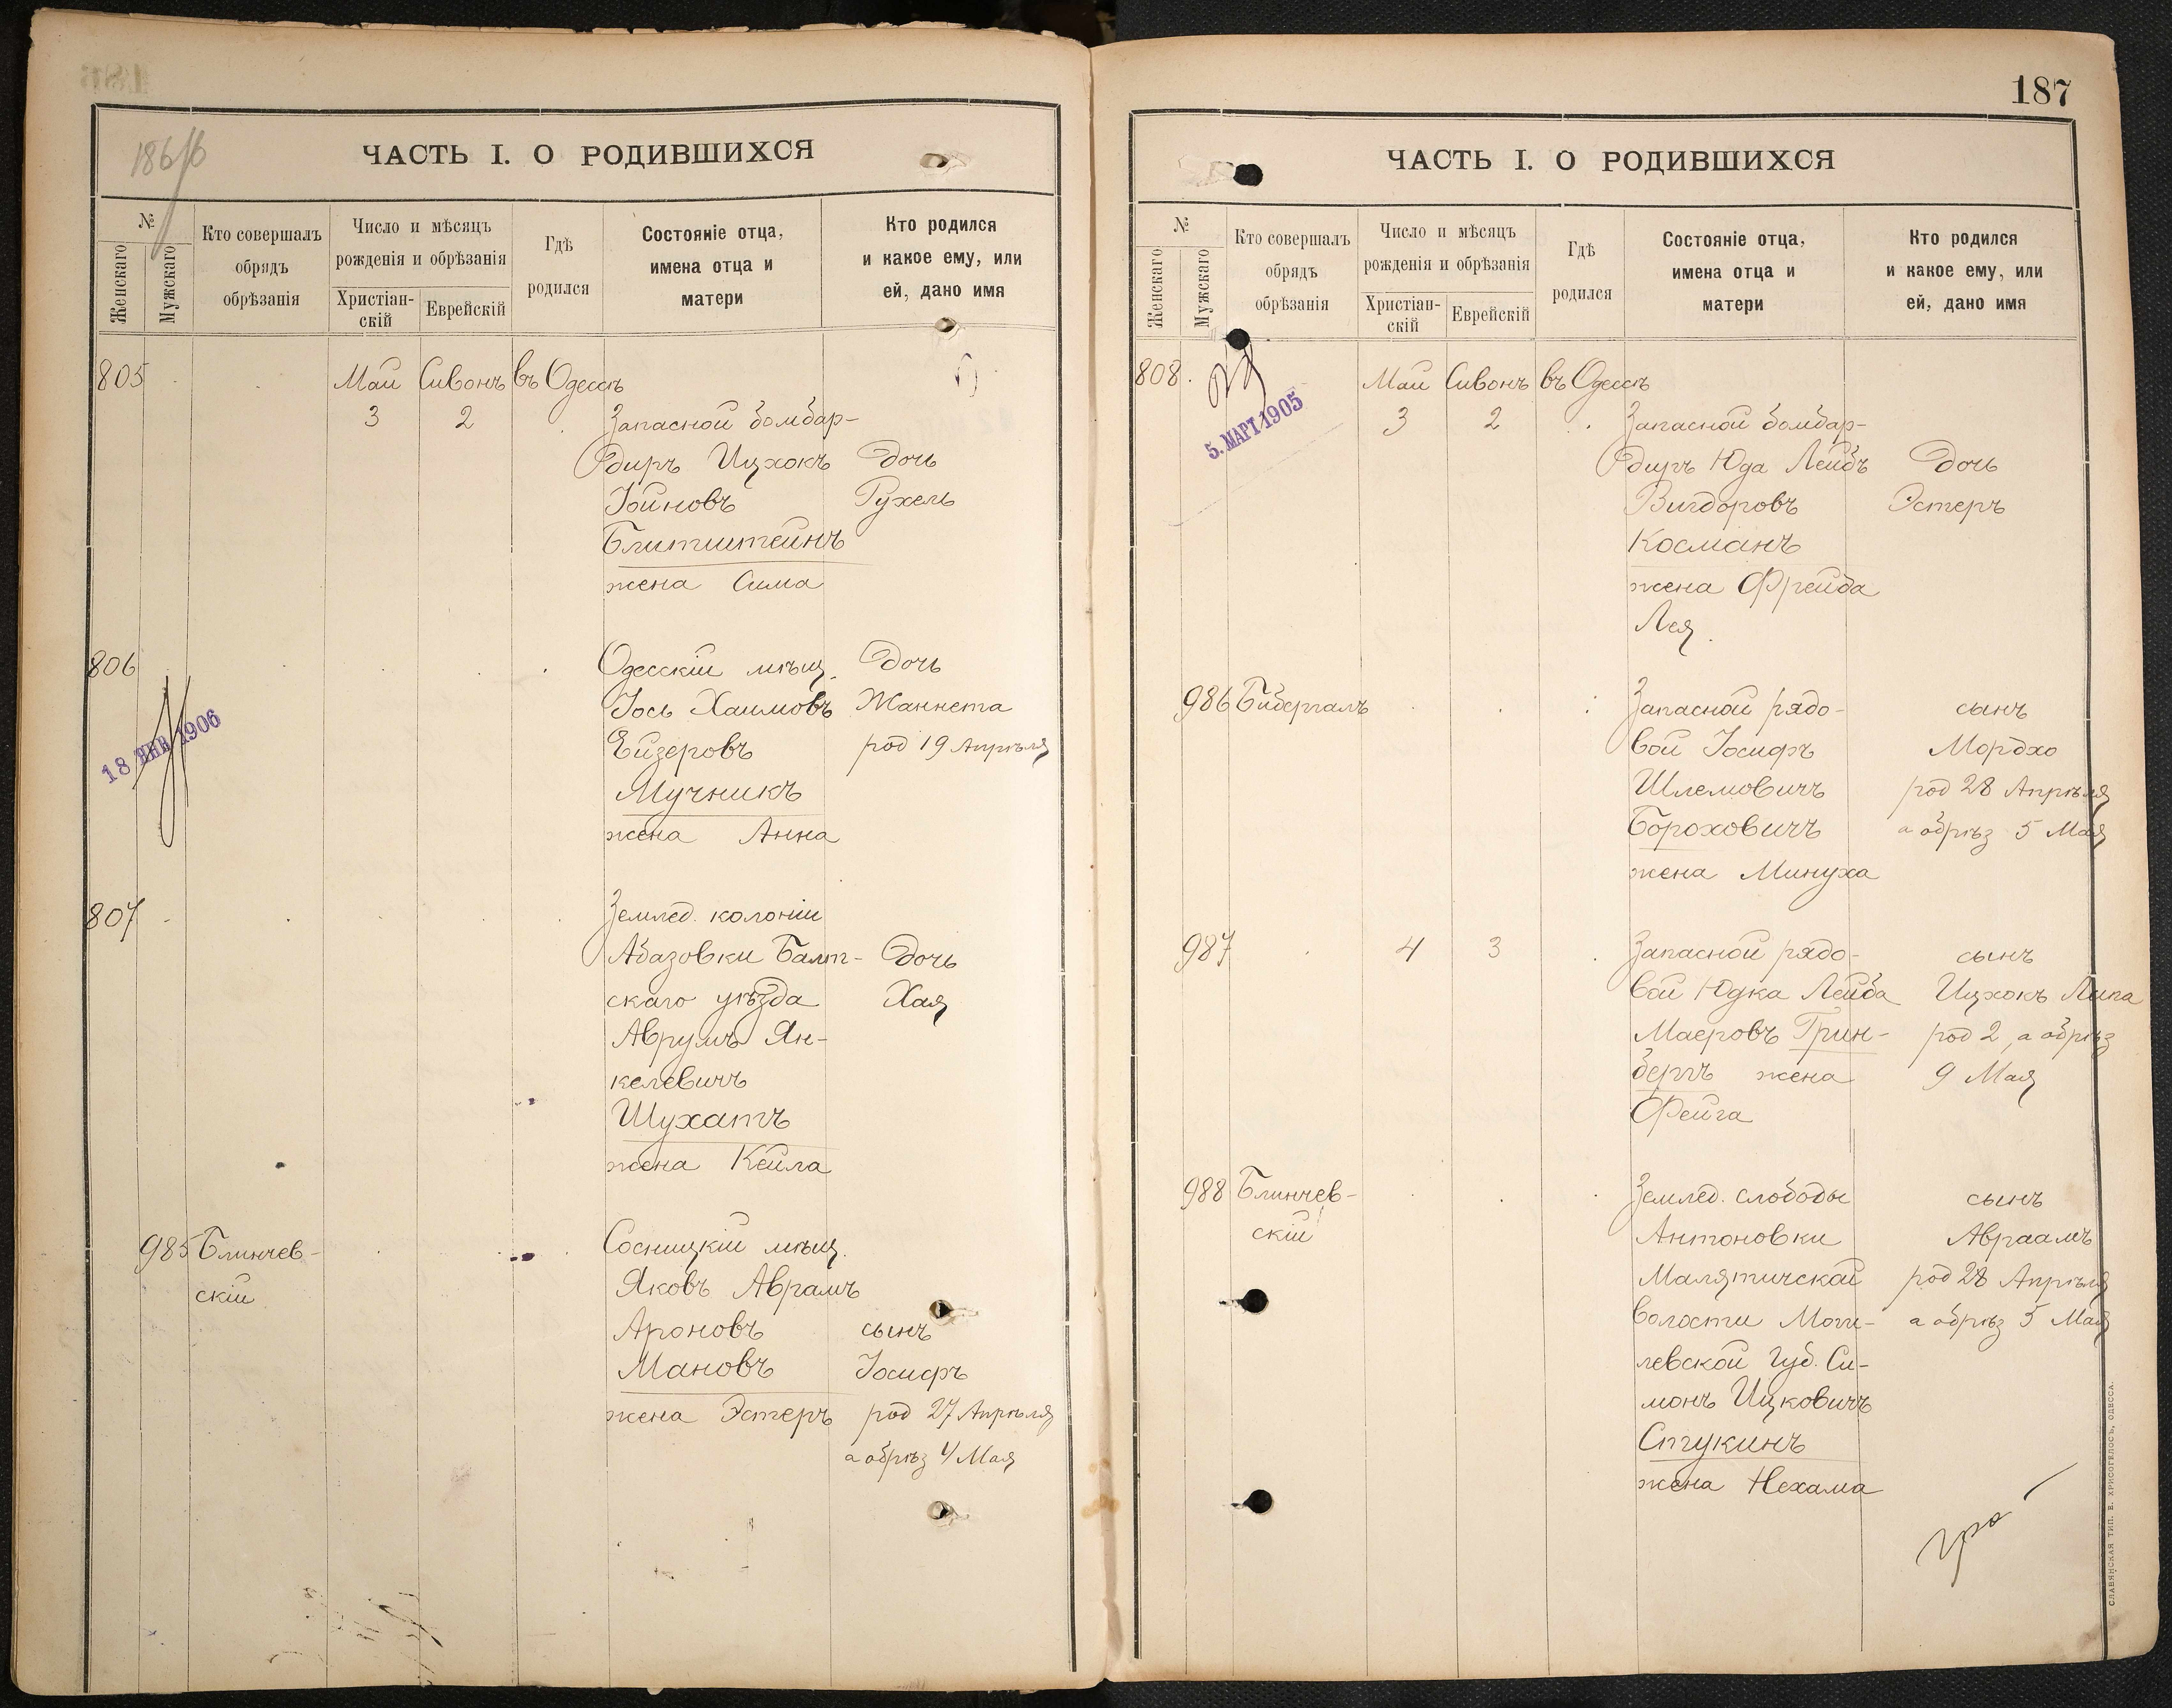 186/б
ЧАСТЬ I. О РОДИВШИХСЯ
№
Женскаго
Мужскаго
Кто совершалъ
обрядъ
обрѣзанія
Число и мѣсяцъ
рожденія и обрѣзанія
Христіан-
скій
Еврейскій
Гдѣ
родился
Состояніе отца,
имена отца и
матери
Кто родился
и какое ему, или
ей, дано имя
805 Май Сивонъ въ Одессѣ
3 2 Запасной бомбар-
диръ Ицхокъ Дочь
Іойновъ Рухель
Блитштейнъ
жена Сима
806 Одесскій мѣщ. Дочь
Іось Хаимовъ Жаннета
18 ЯНВ 1906
Ейзеровъ род 19 Апрѣля
Мучникъ
жена Анна
807 Землед. колоніи
Абазовки Балт- Дочь
скаго уѣзда Хая
Аврумъ Ян-
келевичъ
Шухатъ
жена Кейла
985 Блинчев- Сосницкій мѣщ.
скій Яковъ Аврамъ
Ароновъ сынъ
Мановъ Іосифъ
жена Эстеръ род 27 Апрѣля
а обрѣз 4 Мая
187
ЧАСТЬ I. О РОДИВШИХСЯ
№
Женскаго
Мужскаго
Кто совершалъ
обрядъ
обрѣзанія
Число и мѣсяцъ
рожденія и обрѣзанія
Христіан-
скій
Еврейскій
Гдѣ
родился
Состояніе отца,
имена отца и
матери
Кто родился
и какое ему, или
ей, дано имя
808. Май Сивонъ въ Одессѣ
5. МАРТ 1905
3 2 Запасной бомбар-
диръ Юда Лейбъ Дочь
Вигдоровъ Эстеръ
Косманъ
жена Фрейда
Лея.
986 Бибергалъ Запасной рядо- сынъ
вой Іосифъ Мордхо
Шлемовичъ род 28 Апрѣля
Бороховичъ а обрѣз 5 Мая
жена Минуха
987 4 3 Запасной рядо- сынъ
вой Юдка Лейба Ицхокъ Липа
Маеровъ Грин- род 2, а обрѣз
бергъ жена 9 Мая
Фейга
988 Блинчев- Землед. слободы сынъ
скій Антоновки Авраамъ
Малятичской род 28 Апрѣля
волости Моги- а обрѣз 5 Мая
левской Губ. Си-
монъ Ицковичъ
Стукинъ
жена Нехама
СЛАВЯНСКАЯ ТИП. Е. ХРИСОГЕЛОСЪ, ОДЕССА.